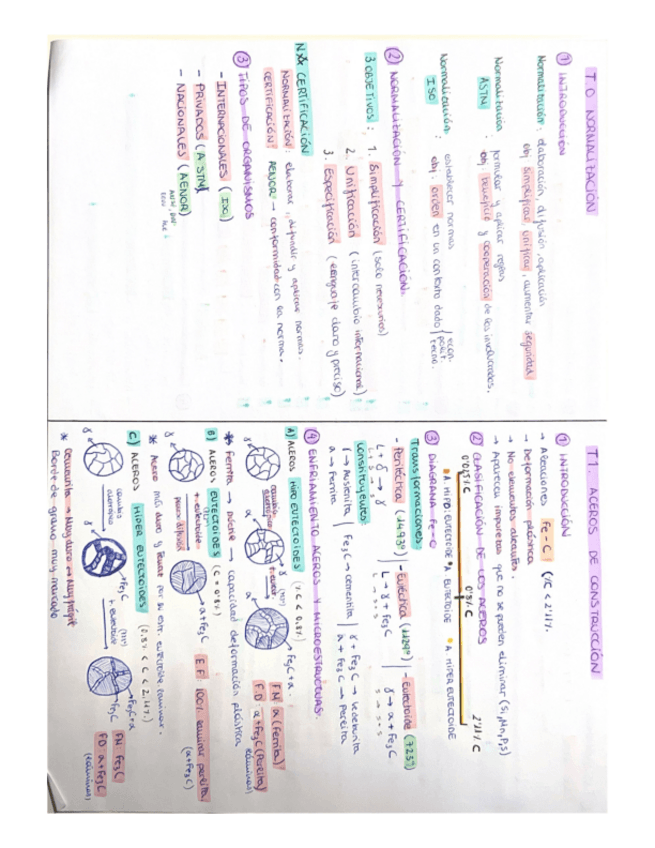 T.0 NORMALIZACIÓN
① INTRODUCCIÓN
Normalización: elaboración, difusión, aplicación
obj: simplificar, unificar, aumentar seguridad
Normalización: formular y aplicar reglas
ASTN obj: beneficio y cooperación de los involucrados.
Normalización: establecer normas
ISO obj: orden en un contexto dado
② NORMALIZACIÓN Y CERTIFICACIÓN.
3 OBJETIVOS: 1. Simplificación (solo necesarios)
2. Unificación (intercambio internacional)
3. Especificación (lenguaje claro y preciso)
CERTIFICACIÓN
NORMALIZACIÓN: elaborar, difundir y aplicar normas.
CERTIFICACIÓN: AENOR → conformidad con la norma.
③ TIPOS DE ORGANISMOS
- INTERNACIONALES (ISO)
- PRIVADOS (ASTN)
- NACIONALES (AENOR)
T1. ACEROS DE CONSTRUCCIÓN
① INTRODUCCIÓN
→ Aleaciones Fe-C (%C < 2'11%)
→ Deformación plástica
→ No elementos aleantes.
→ Aparecen impurezas que no se pueden eliminar (Si, Mn, P, S)
② CLASIFICACIÓN DE LOS ACEROS
0'8% C 2'11% C
A. HIPO EUTECTOIDE A EUTECTOIDE A HIPER EUTECTOIDE
③ DIAGRAMA Fe-C
Transformaciones:
- Peritéctica (1493º) | - Eutéctica | - Eutectoide (723º)
L + δ → γ | L → γ + Fe3C | γ → α + Fe3C
Constituyentes
γ → Austenita | Fe3C → cementita | γ + Fe3C → Ledeburita
α → Ferrita | α + Fe3C → Perlita
④ ENFRIAMIENTO ACEROS Y MICROESTRUCTURAS.
A) ACEROS HIPOEUTECTOIDES (%C < 0,8%)
γ cambio alotrópico γ Fe3C + α
F.N: α (Ferrita)
F.D: α + Fe3C (Perlita)
* Ferrita → Dúctil → capacidad deformación plástica
B) ACEROS EUTECTOIDES (C = 0'8%)
γ t. eutectoide α + Fe3C
E.F: 100% laminar perlita
(α + Fe3C)
* Acero más duro y tenaz por su estr. eutectoide laminar.
C) ACEROS HIPER EUTECTOIDES (0,8% < C < 2,11%)
γ cambio alotrópico γ Fe3C t. eutectoide Fe3C Fe3C + α
FN: Fe3C
FD: α + Fe3C
(láminas)
* Cementita → Muy duro → Muy frágil
Borde de grano muy marcado